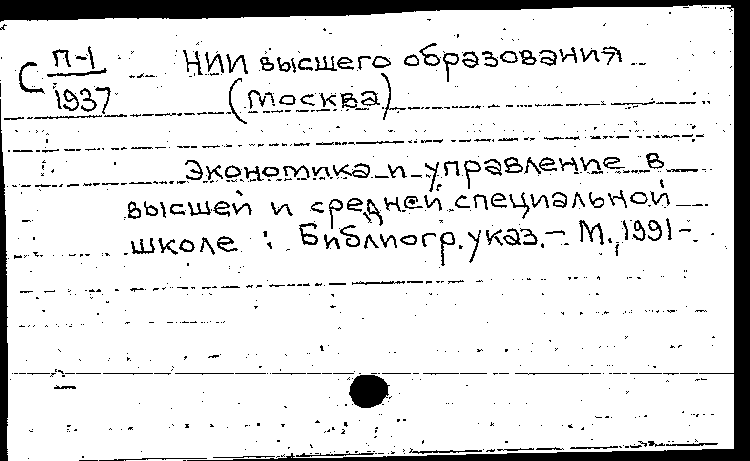 С П-1
1937
НИИ высшего образования
(Москва)
Экономика и управление в
высшей и средней специальной
школе : Библиогр. указ. – М., 1991 –